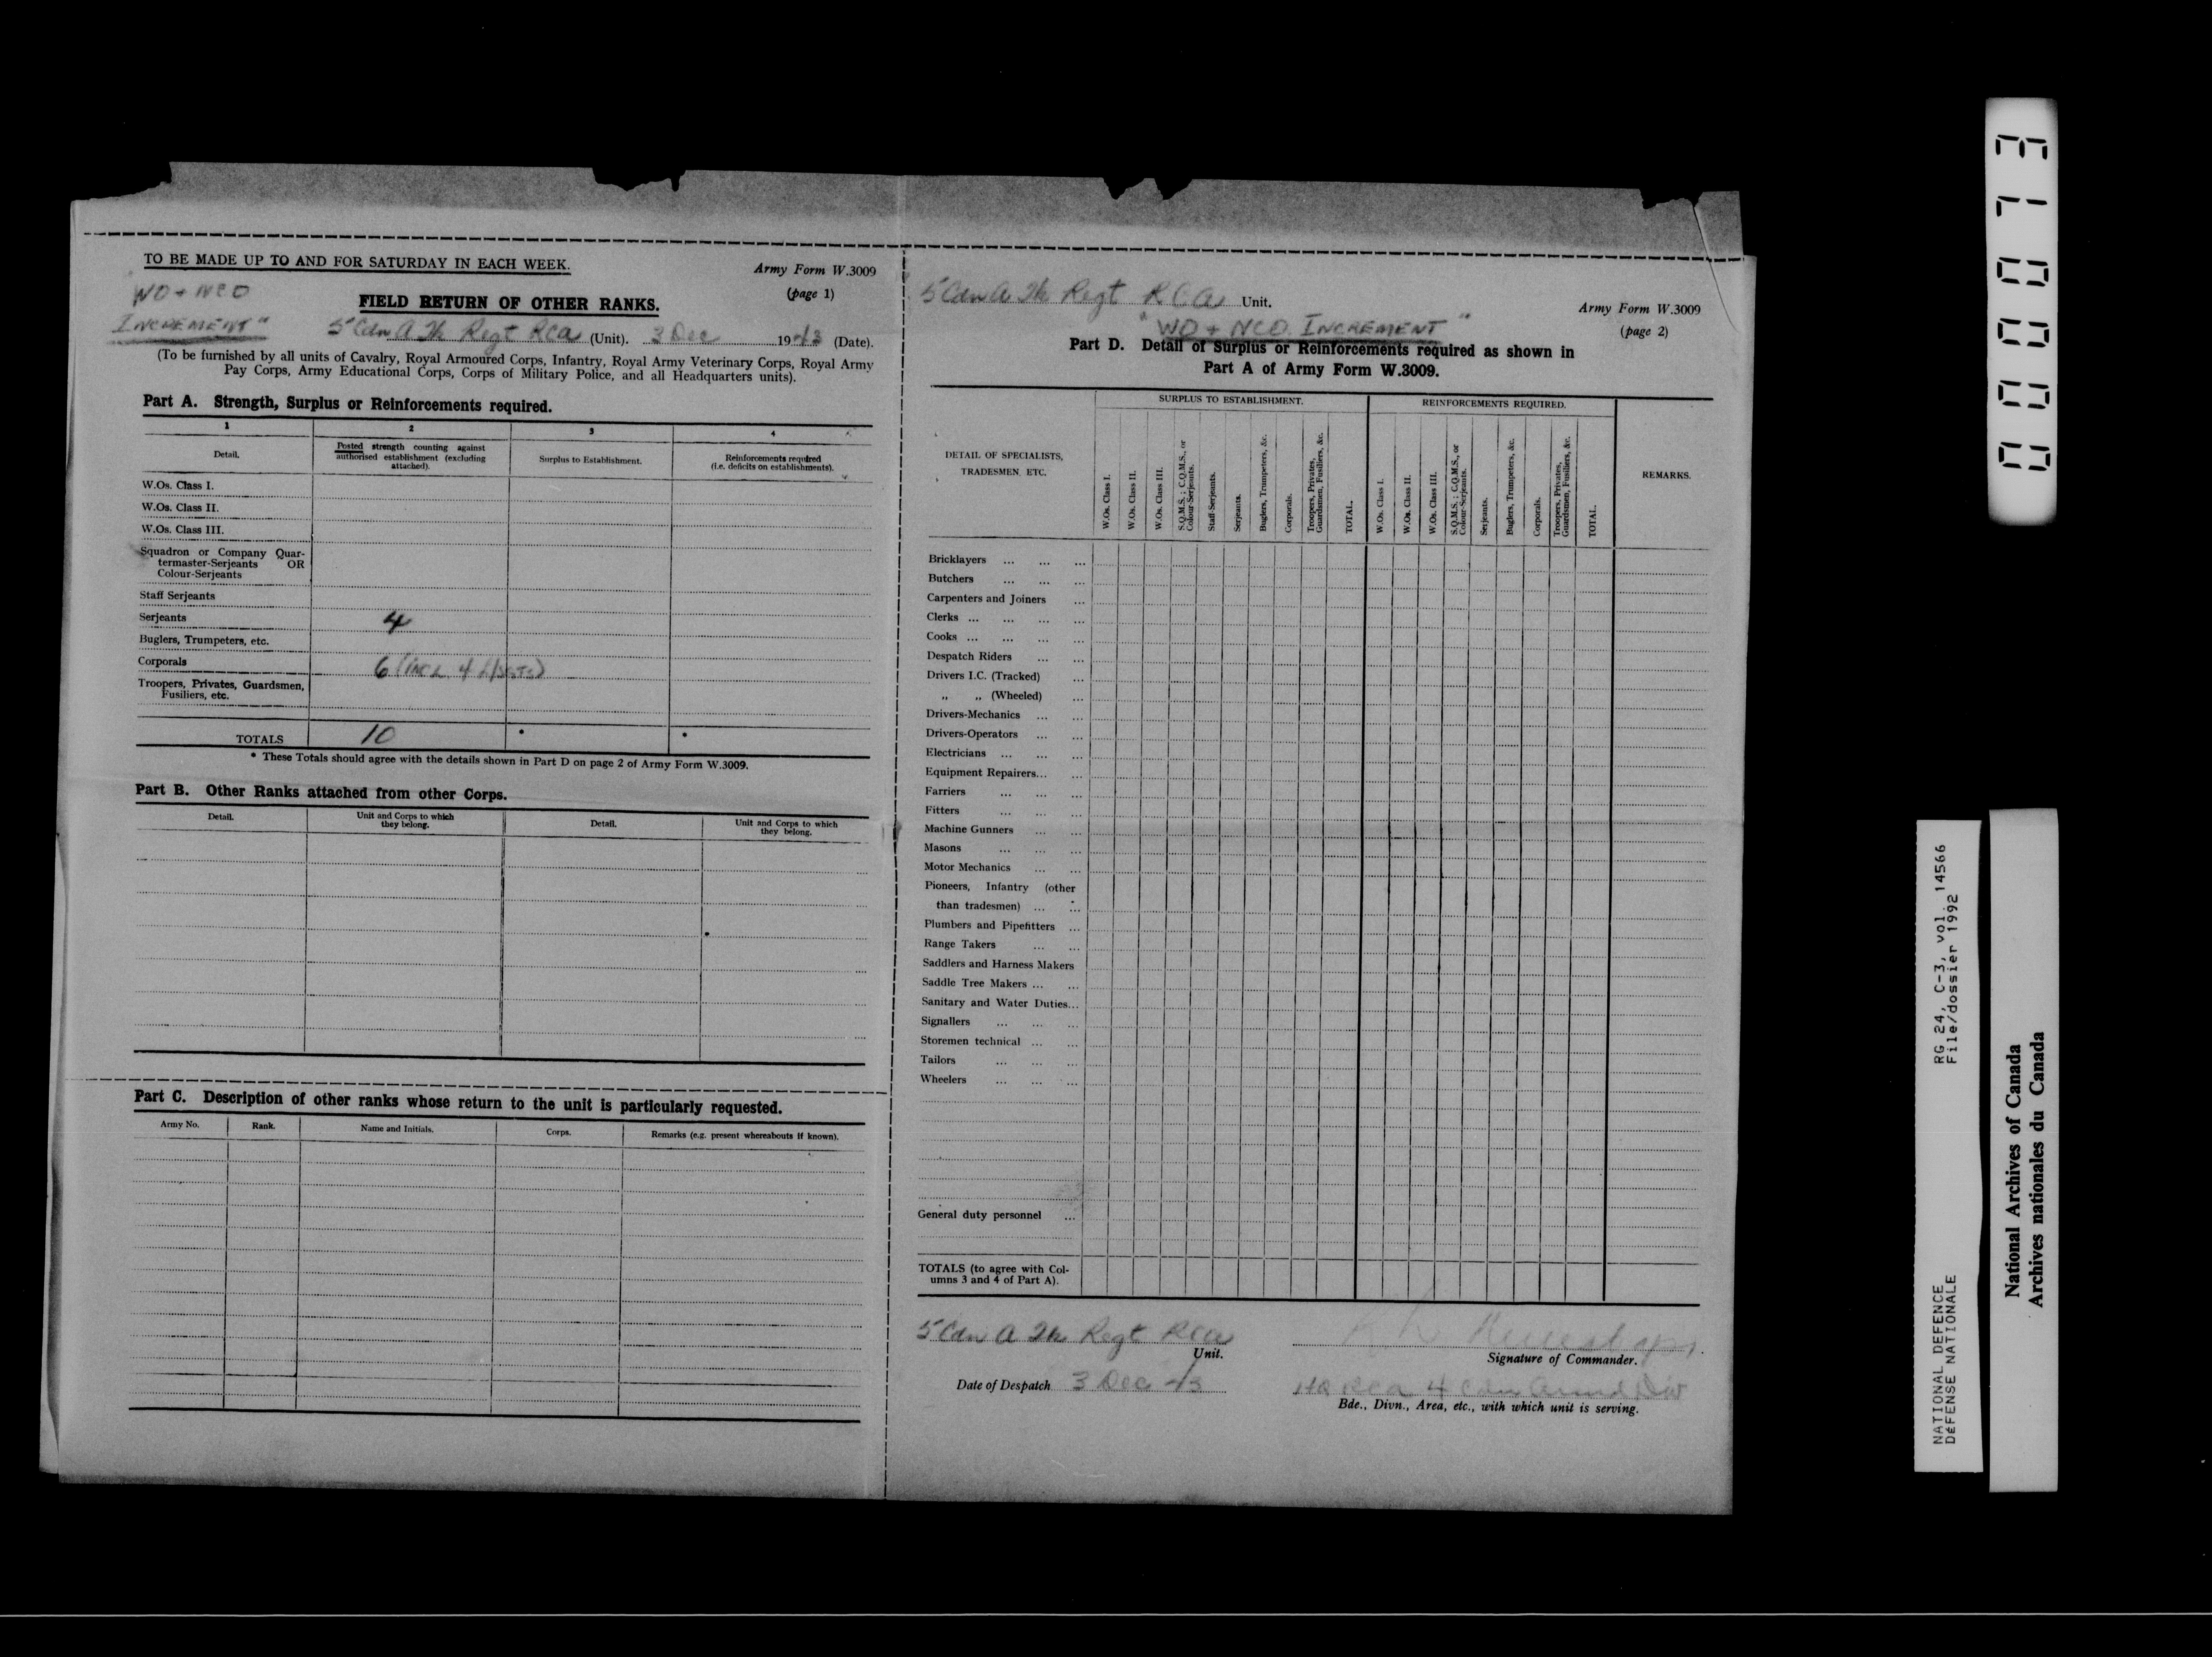 TO BE MADE UP TO AND FOR SATURDAY IN EACH WEEK.
Army Form W.3009
(page 1)
"WO + NCO
INCREMENT"
FIELD RETURN OF OTHER RANKS.
5 Cdn A Tk Regt RCA (Unit). 3 Dec 1943 (Date).
(To be furnished by all units of Cavalry, Royal Armoured Corps, Infantry, Royal Army Veterinary Corps, Royal Army
Pay Corps, Army Educational Corps, Corps of Military Police, and all Headquarters units).
Part A. Strength, Surplus or Reinforcements required.
1 2 3 4
Detail.
Posted strength counting against
authorised establishment (excluding
attached).
Surplus to Establishment.
Reinforcements required
(i.e. deficits on establishments).
W.Os. Class I.
W.Os. Class II.
W.Os. Class III.
Squadron or Company Quar-
termaster-Serjeants OR
Colour-Serjeants
Staff Serjeants
Serjeants 4
Buglers, Trumpeters, etc.
Corporals 6 (incl 4 L/Sgts)
Troopers, Privates, Guardsmen,
Fusiliers, etc.
TOTALS 10 * *
* These Totals should agree with the details shown in Part D on page 2 of Army Form W.3009.
Part B. Other Ranks attached from other Corps.
Detail.
Unit and Corps to which
they belong.
Detail.
Unit and Corps to which
they belong.
Part C. Description of other ranks whose return to the unit is particularly requested.
Army No. Rank. Name and Initials. Corps. Remarks (e.g. present whereabouts if known).
5 Cdn A Tk Regt RCA Unit.
Army Form W.3009
(page 2)
"WO + NCO INCREMENT"
Part D. Detail of Surplus or Reinforcements required as shown in
Part A of Army Form W.3009.
DETAIL OF SPECIALISTS,
TRADESMEN, ETC.
SURPLUS TO ESTABLISHMENT.
W.Os. Class I.
W.Os. Class II.
W.Os. Class III.
S.Q.M.S.; C.Q.M.S., or
Colour-Serjeants.
Staff-Serjeants.
Serjeants.
Buglers, Trumpeters, &c.
Corporals.
Troopers, Privates,
Guardsmen, Fusiliers, &c.
TOTAL.
REINFORCEMENTS REQUIRED.
W.Os. Class I.
W.Os. Class II.
W.Os. Class III.
S.Q.M.S.; C.Q.M.S., or
Colour-Serjeants.
Serjeants.
Buglers, Trumpeters, &c.
Corporals.
Troopers, Privates,
Guardsmen, Fusiliers, &c.
TOTAL.
REMARKS.
Bricklayers ... ... ...
Butchers ... ... ...
Carpenters and Joiners ...
Clerks ... ... ... ...
Cooks ... ... ... ...
Despatch Riders ... ...
Drivers I.C. (Tracked) ...
„ „ (Wheeled) ...
Drivers-Mechanics ... ...
Drivers-Operators ... ...
Electricians ... ... ...
Equipment Repairers... ...
Farriers ... ... ...
Fitters ... ... ...
Machine Gunners ... ...
Masons ... ... ...
Motor Mechanics ... ...
Pioneers, Infantry (other
than tradesmen) ... ...
Plumbers and Pipefitters ...
Range Takers ... ...
Saddlers and Harness Makers
Saddle Tree Makers ... ...
Sanitary and Water Duties...
Signallers ... ... ...
Storemen technical ... ...
Tailors ... ... ...
Wheelers ... ... ...
General duty personnel ...
TOTALS (to agree with Col-
umns 3 and 4 of Part A).
5 Cdn A Tk Regt RCA
Unit.
Signature of Commander.
Date of Despatch 3 Dec 43
HQ RCA 4 Cdn Armd Div
Bde., Divn., Area, etc., with which unit is serving.
000073
NATIONAL DEFENCE RG 24, C-3, vol. 14566
DÉFENSE NATIONALE File/dossier 1992
National Archives of Canada
Archives nationales du Canada